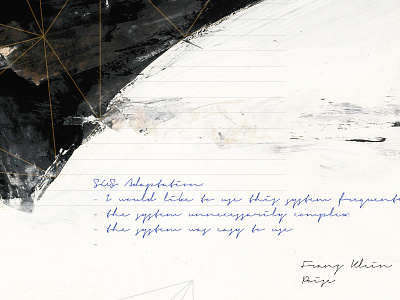 SUS Adaptation
- I would like to use this system frequent
- the system unnecessarily complex
- the system was easy to use
-
Franz Klein